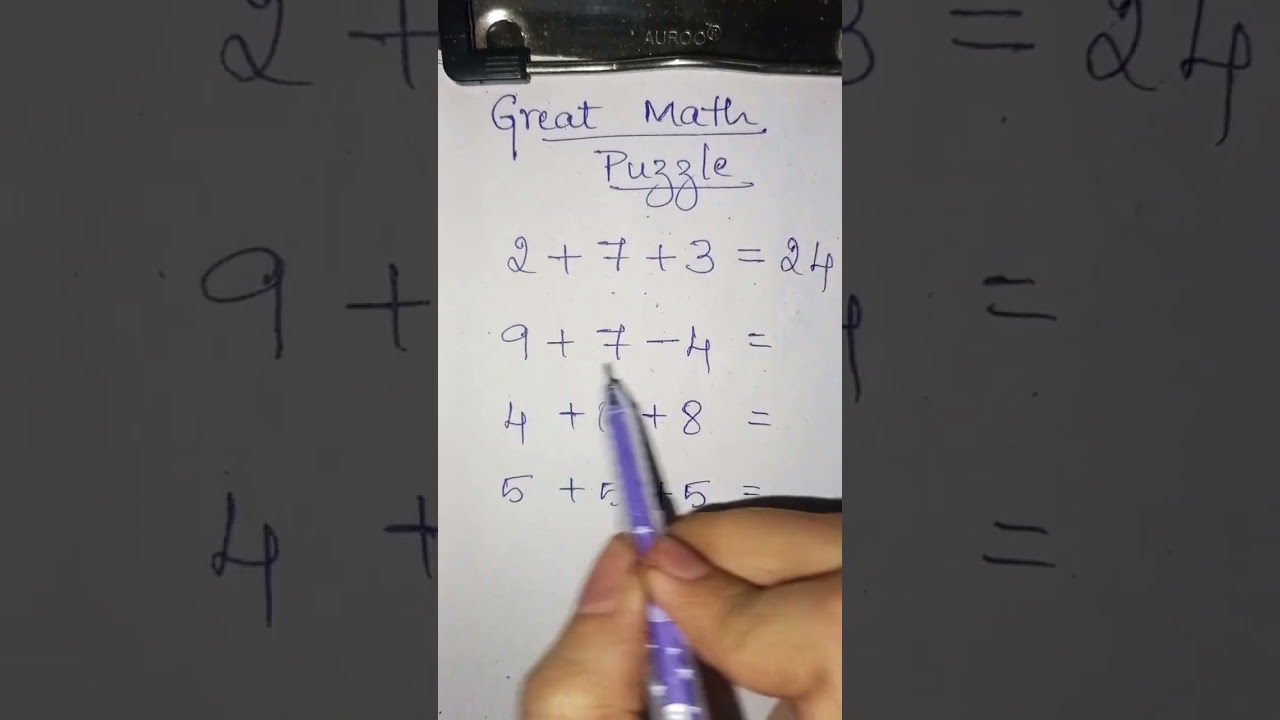 AUROO®
Great Math
Puzzle
2 + 7 + 3 = 24
9 + 7 - 4 =
4 + + 8 =
5 + 5 + 5 =